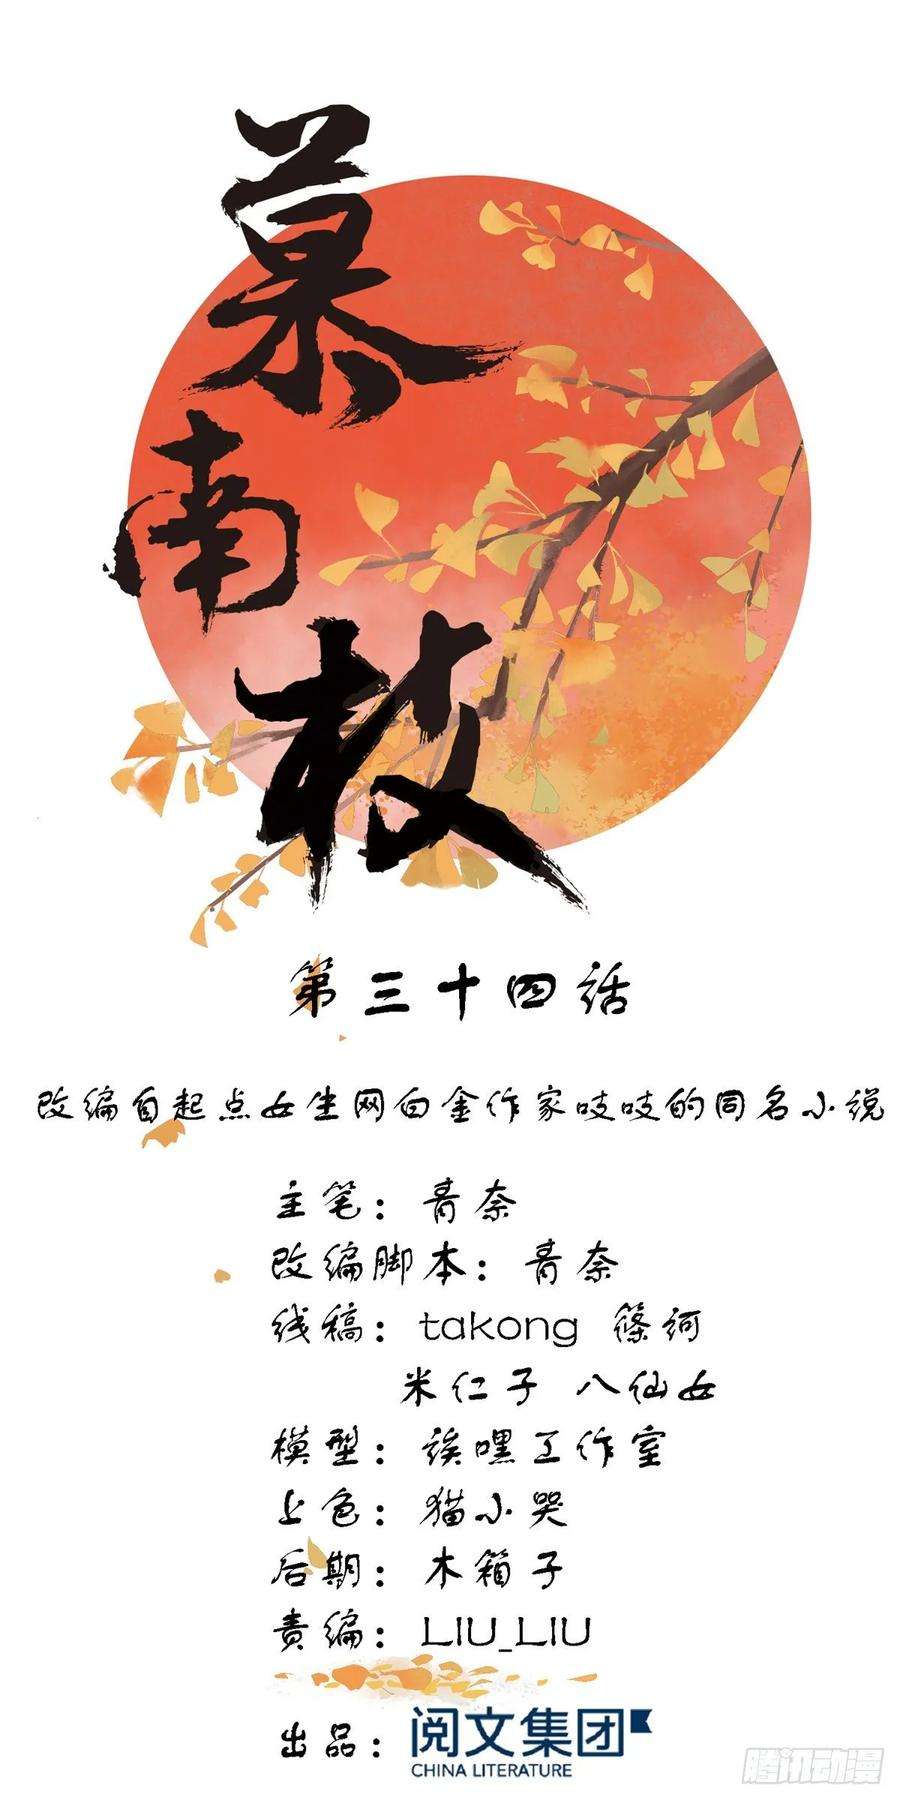 慕
南
枝
第三十四話
改编自起点女生网白金作家吱吱的同名小说
主笔：青奈
改编脚本：青奈
线稿：takong 篠河
米仁子 八仙女
模型：诶嘿工作室
上色：猫小哭
后期：木箱子
责编：LIU_LIU
出品：阅文集团
CHINA LITERATURE
腾讯动漫